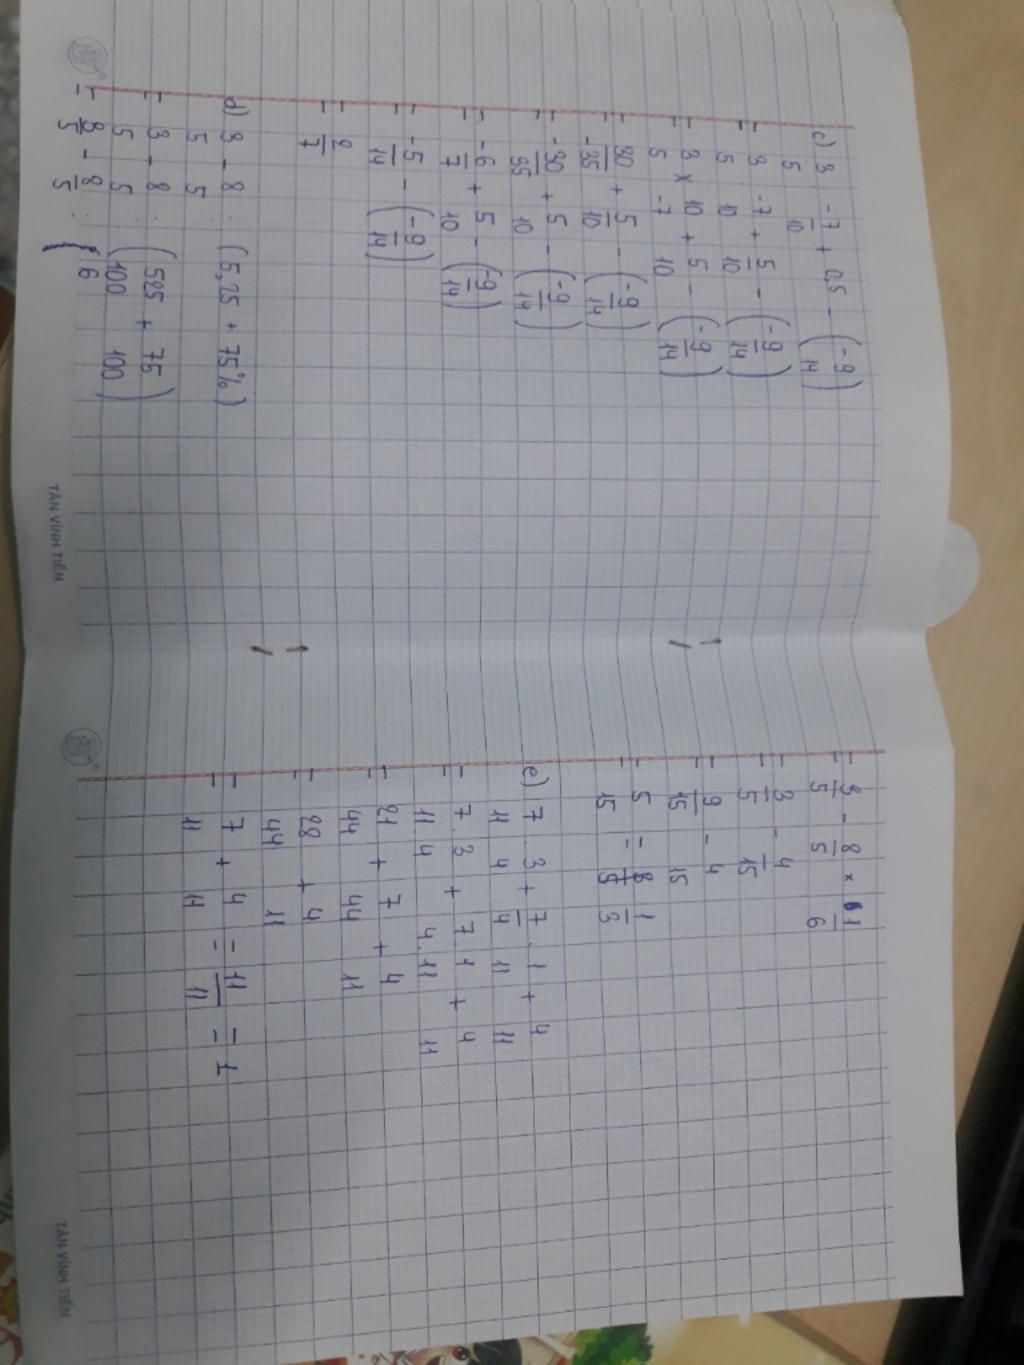 c) 3/5 : -7/10 + 0,5 - (-9/14)
= 3/5 : -7/10 + 5/10 - (-9/14)
= 3/5 × 10/-7 + 5/10 - (-9/14)
= 30/-35 + 5/10 - (-9/14)
= -30/35 + 5/10 - (-9/14)
= -6/7 + 5/10 - (-9/14)
= -5/14 - (-9/14)
= 2/7
d) 3/5 - 8/5 : (5,25 + 75%)
= 3/5 - 8/5 : (525/100 + 75/100)
= 3/5 - 8/5 : 6
TÂN VĨNH TIẾN
= 3/5 - 8/5 × 1/6
= 3/5 - 4/15
= 9/15 - 4/15
= 5/15 = 1/3
e) 7/11 . 3/4 + 7/4 . 1/11 + 4/11
= 7.3/11.4 + 7.1/4.11 + 4/11
= 21/44 + 7/44 + 4/11
= 28/44 + 4/11
= 7/11 + 4/11 = 11/11 = 1
TÂN VĨNH TIẾN